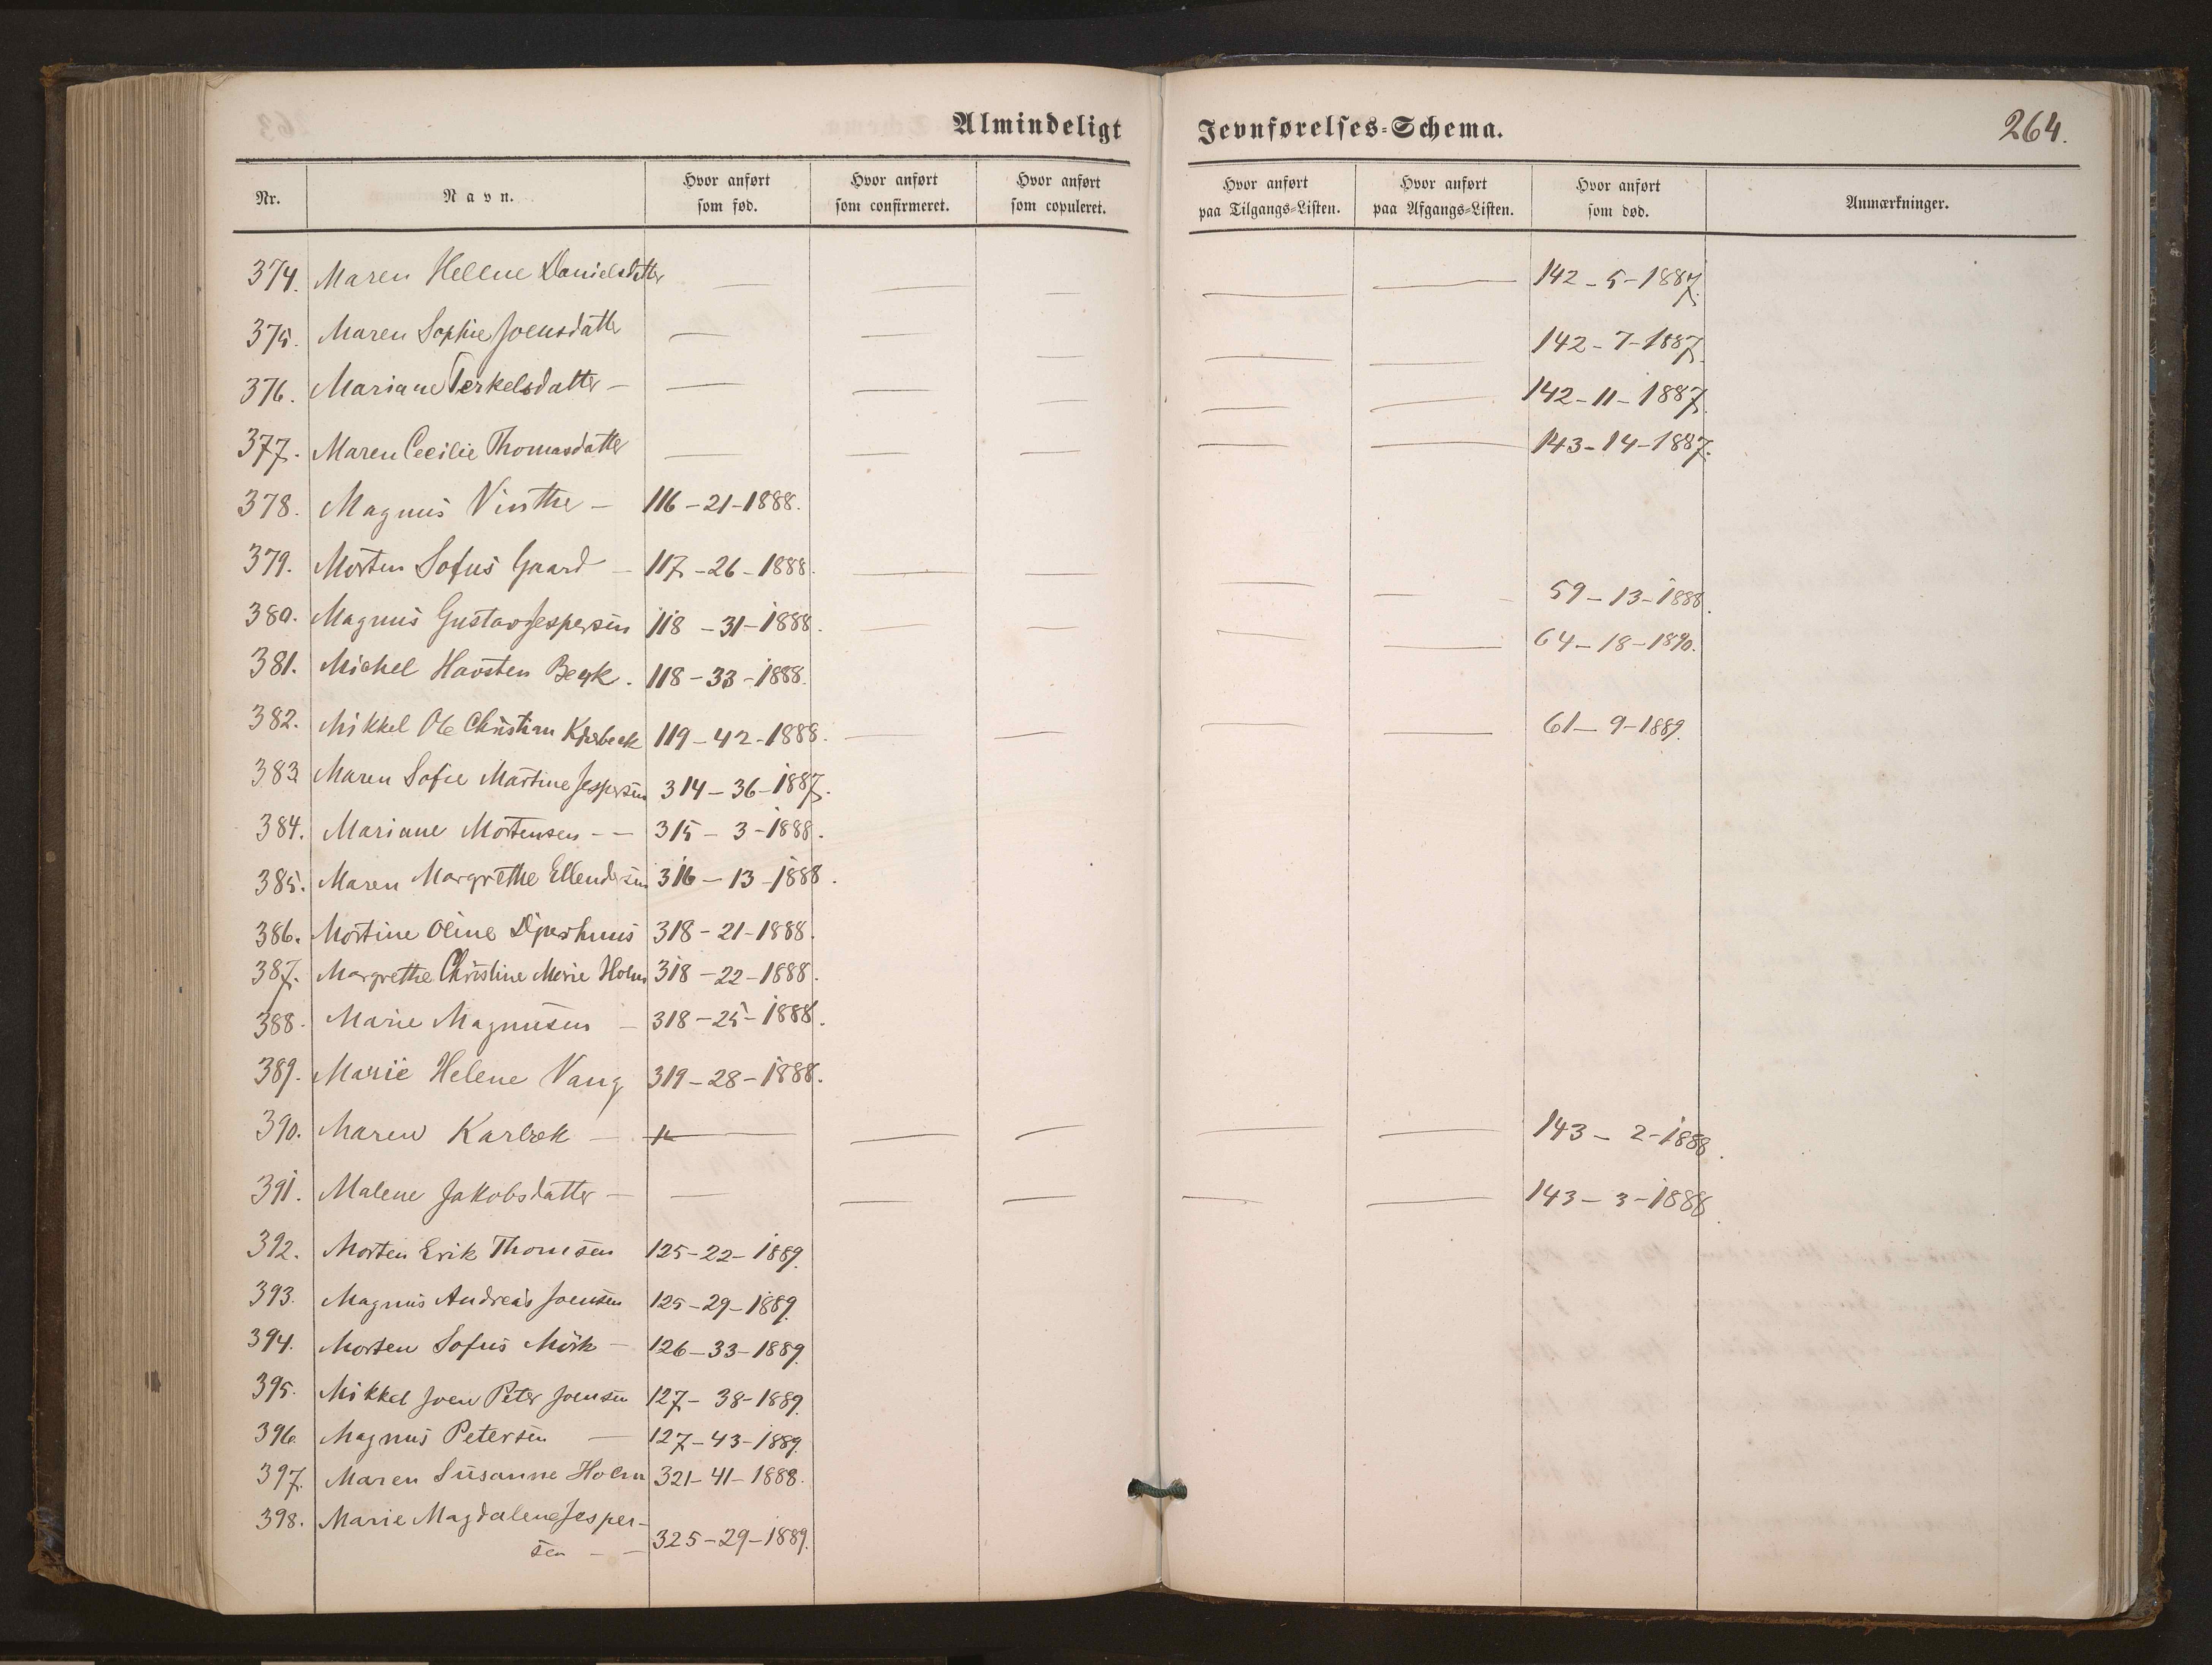 Almindeligt Jevnførelses-Schema. 264.
Nr. Navn. Hvor anført som fød. Hvor anført som confirmeret. Hvor anført som copuleret. Hvor anført paa Tilgangs-Listen. Hvor anført paa Afgangs-Listen. Hvor anført som død. Anmærkninger.
374. Maren Helene Danielsdatter — — — — — 142-5-1887.
375. Maren Sophie Joensdatter — — — — — 142-7-1887.
376. Mariane Terkelsdatter — — — — — — 142-11-1887.
377. Maren Cecilie Thomasdatter — — — — — 143-14-1887.
378. Magnus Vinther — 116-21-1888.
379. Morten Sofus Gaard — 117-26-1888. — — — — 59-13-1888.
380. Magnus Gustav Jespersen 118-31-1888. — — — — 64-18-1890.
381. Michel Havsten 118-33-1888.
382. Mikkel Ole Christian 119-42-1888. — — — — 61-9-1889.
383 Maren Sofie Martine Jespersen 314-36-1887.
384. Mariane Mortensen - — 315-3-1888.
385. Maren Margrethe Ellendersen 316-13-1888.
386. Mortine Oline Djurhuus 318-21-1888.
387. Margrethe Christine Marie Holm 318-22-1888.
388. Marie Magnusen — 318-25-1888.
389. Marie Helene Vang 319-28-1888.
390. Maren Karbek — — — — — — 143-2-1888.
391. Malene Jakobsdatter — — — — — — 143-3-1888.
392. Morten Erik Thomsen 125-22-1889.
393. Magnus Andreas Joensen 125-29-1889.
394. Morten Sofus Mörk — 126-33-1889.
395. Mikkel Joen Peter Joensen 127-38-1889.
396. Magnus Petersen — 127-43-1889.
397. Maren Susanne Holm 321-41-1888.
398. Marie Magdalene Jesper-
sen — — 325-29-1889.